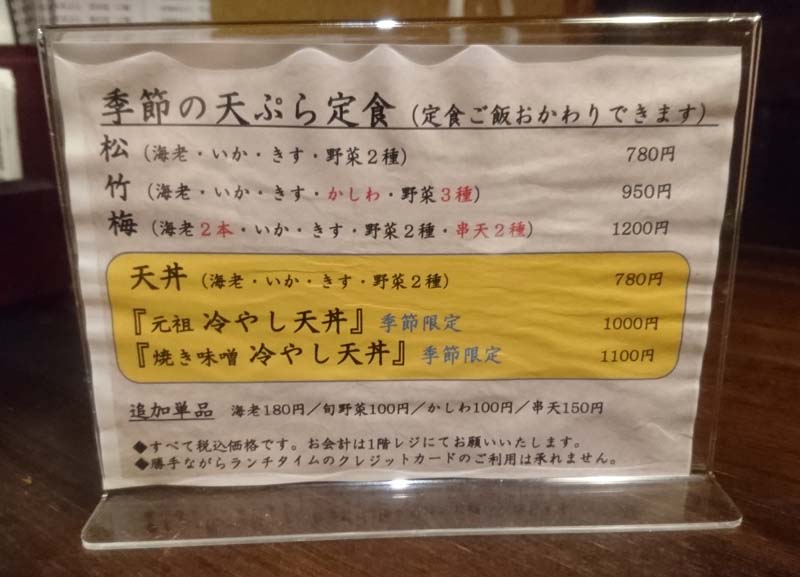 季節の天ぷら定食（定食ご飯おかわりできます）
松（海老・いか・きす・野菜２種） 780円
竹（海老・いか・きす・かしわ・野菜３種） 950円
梅（海老２本・いか・きす・野菜２種・串天２種） 1200円
天丼（海老・いか・きす・野菜２種） 780円
『元祖 冷やし天丼』季節限定 1000円
『焼き味噌 冷やし天丼』季節限定 1100円
追加単品 海老180円／旬野菜100円／かしわ100円／串天150円
◆すべて税込価格です。お会計は1階レジにてお願いいたします。
◆勝手ながらランチタイムのクレジットカードのご利用は承れません。